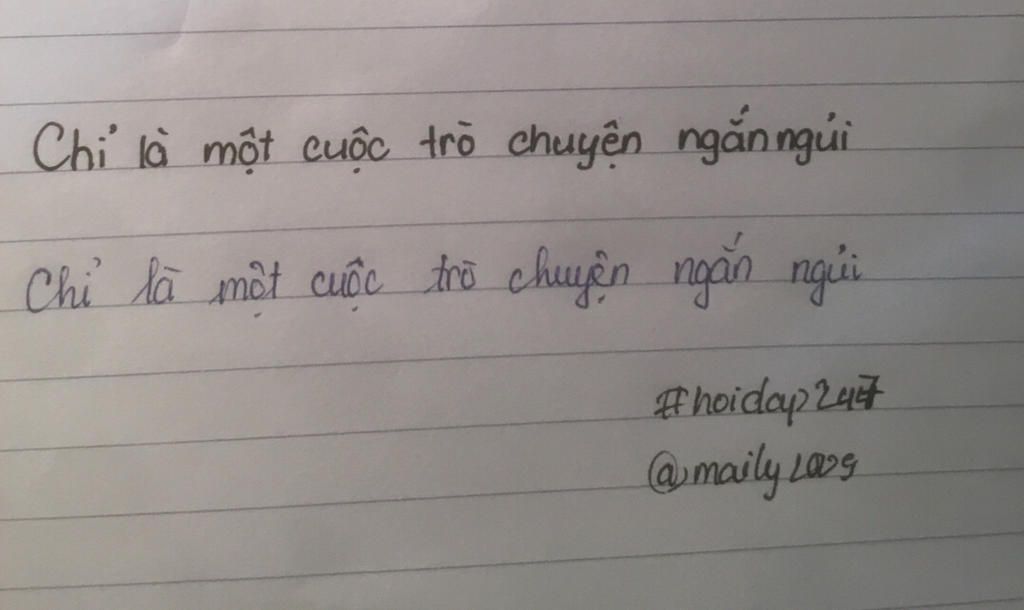 Chỉ là một cuộc trò chuyện ngắn ngủi
Chỉ là một cuộc trò chuyện ngắn ngủi
#hoidap247
@maily2009